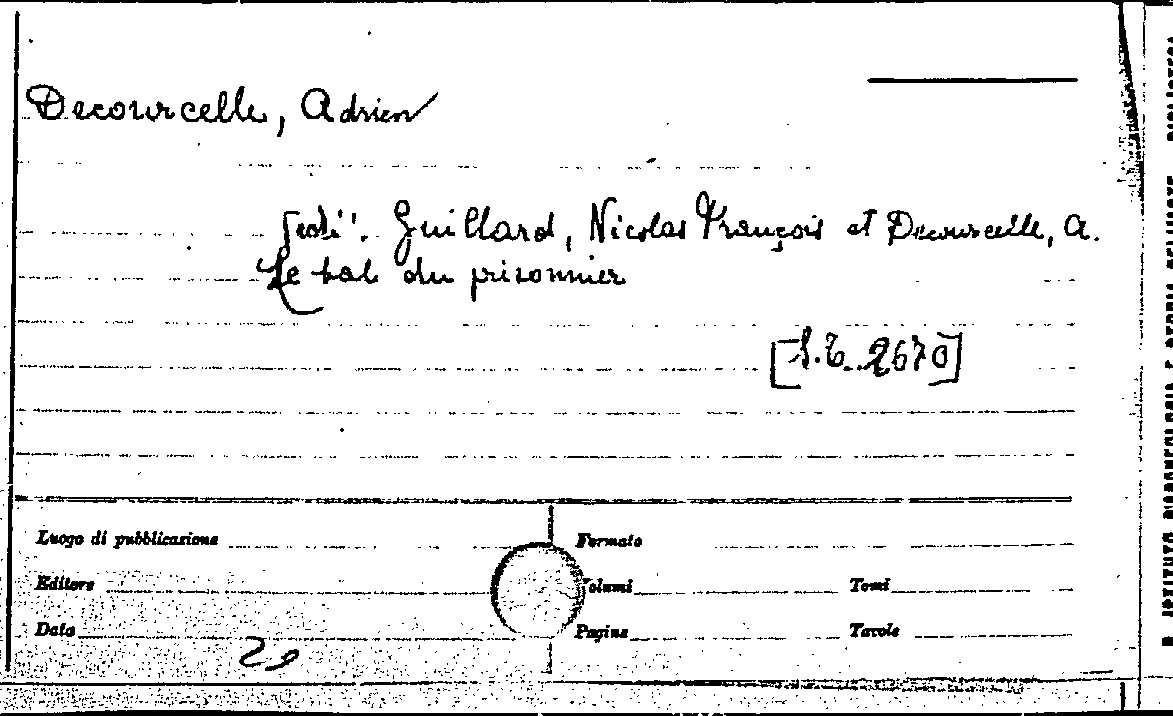 Decourcelle, Adrien
Vedi: Guillard, Nicolas François et Decourcelle, A.
Le bal du prisonnier
[S.T. 2670]
Luogo di pubblicazione Formato
Editore Volumi Tomi
Data Pagine Tavole
29